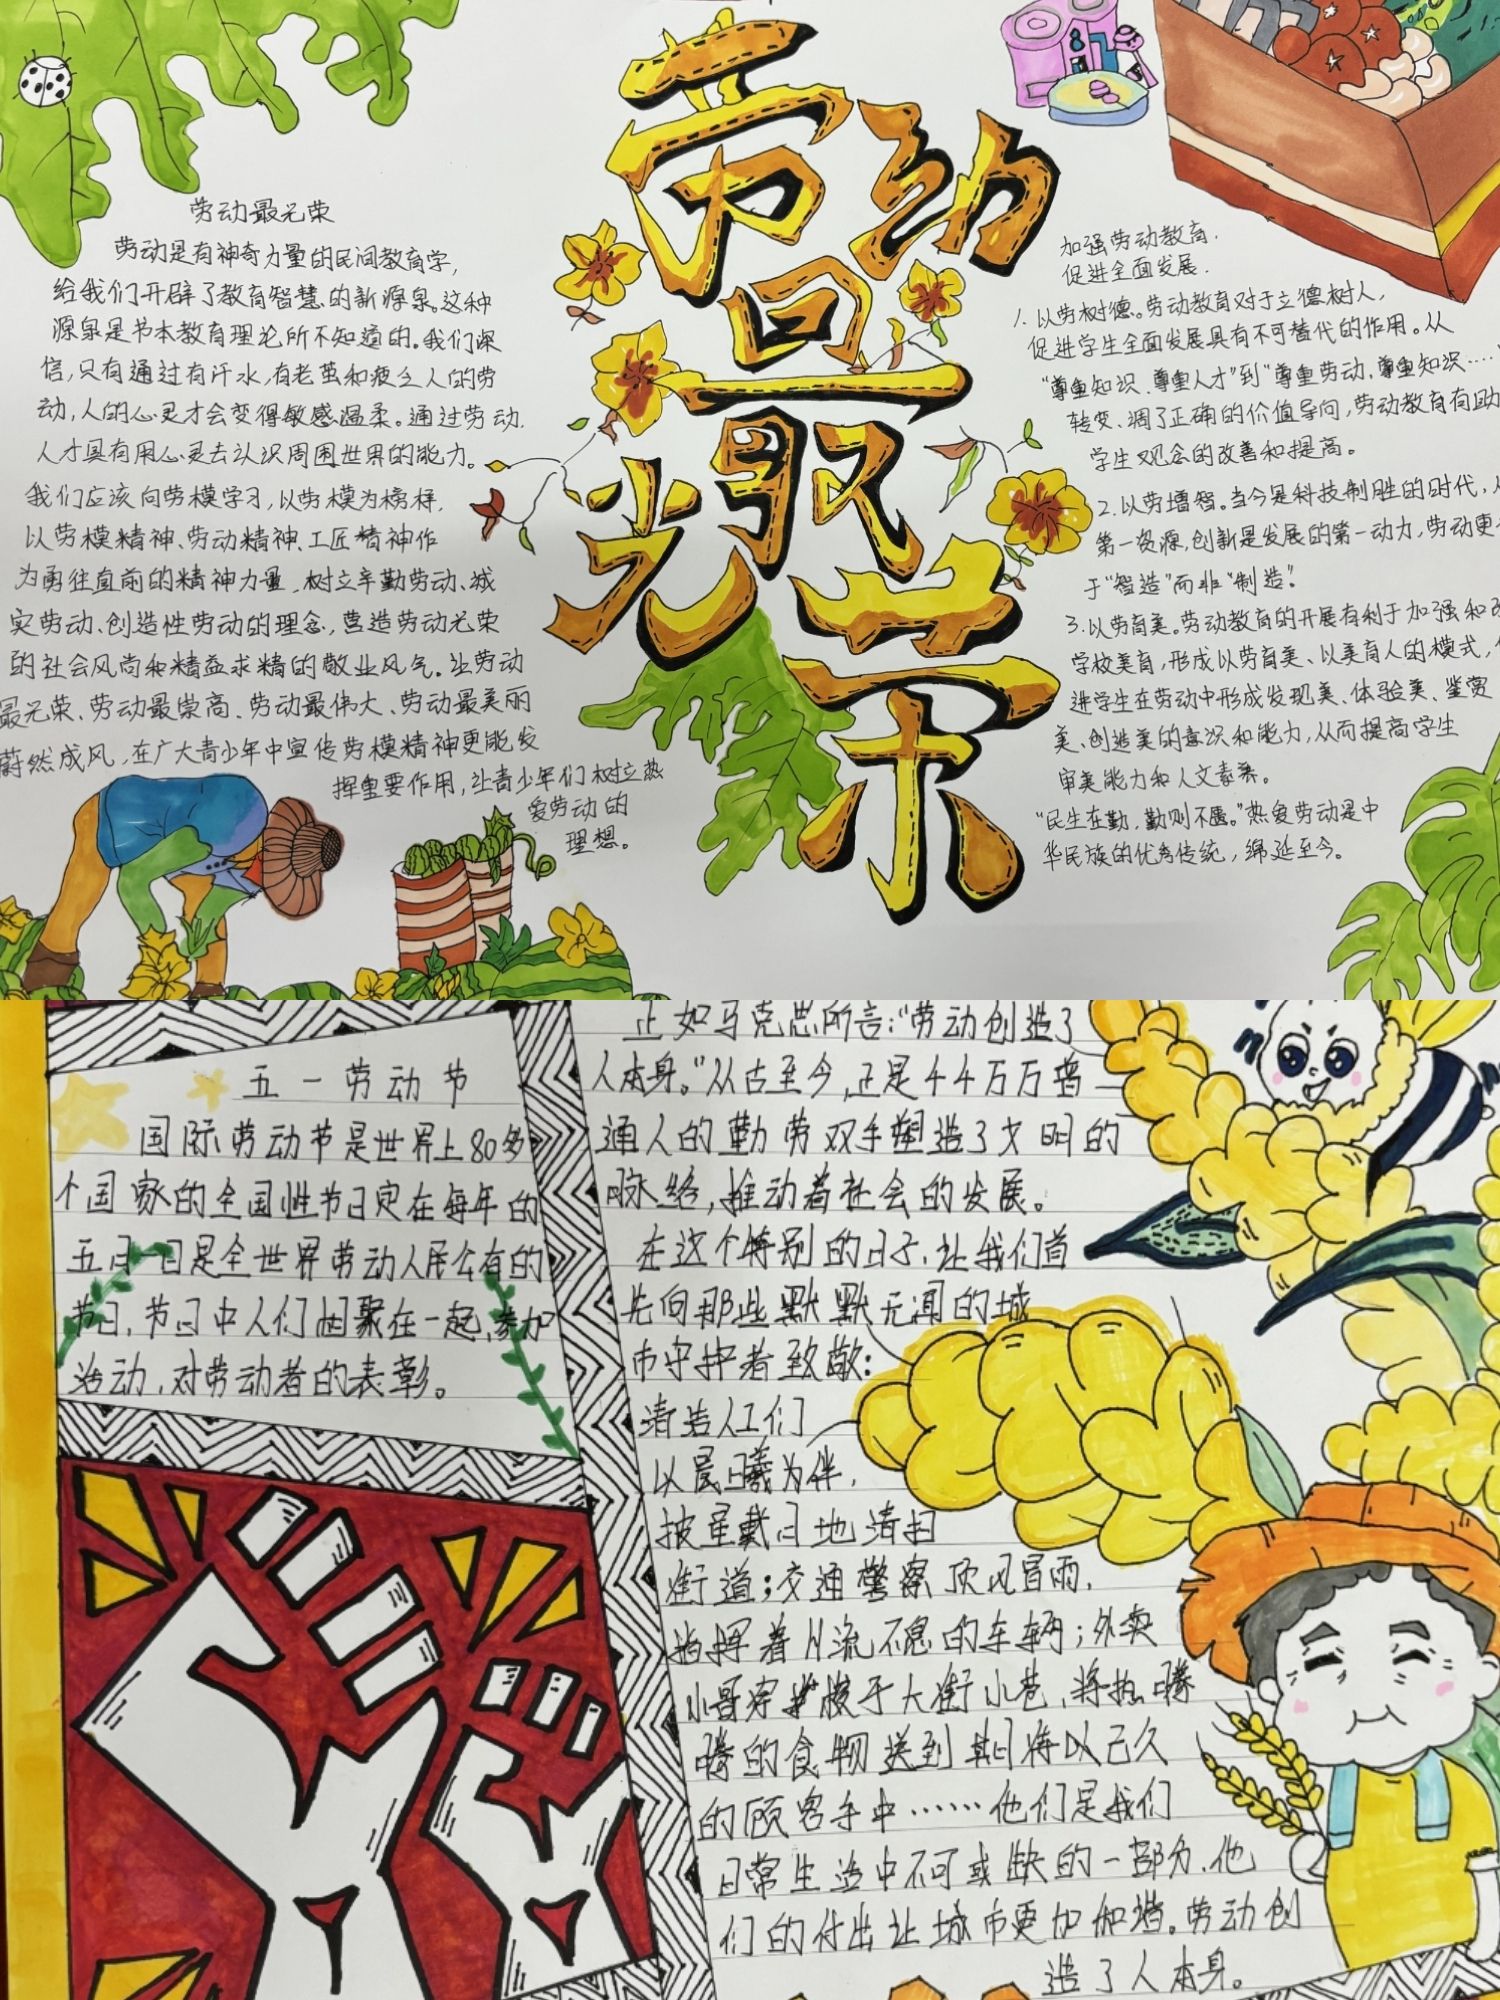 劳动
最
光荣
劳动最光荣
劳动是有神奇力量的民间教育学,
给我们开辟了教育智慧的新源泉。这种
源泉是书本教育理论所不知道的。我们深
信,只有通过有汗水,有老茧和疲乏人的劳
动,人的心灵才会变得敏感温柔。通过劳动,
人才具有用心灵去认识周围世界的能力。
我们应该向劳模学习,以劳模为榜样,
以劳模精神、劳动精神、工匠精神作
为勇往直前的精神力量,树立辛勤劳动、诚
实劳动、创造性劳动的理念,营造劳动光荣
的社会风尚和精益求精的敬业风气。让劳动
最光荣、劳动最崇高、劳动最伟大、劳动最美丽
蔚然成风,在广大青少年中宣传劳模精神更能发
挥重要作用,让青少年们树立热
爱劳动的
理想。
加强劳动教育.
促进全面发展.
1.以劳树德。劳动教育对于立德树人,
促进学生全面发展具有不可替代的作用。从
“尊重知识、尊重人才”到“尊重劳动,尊重知识……
转变、调了正确的价值导向,劳动教育有助
学生观念的改善和提高。
2.以劳增智。当今是科技制胜的时代,
第一资源,创新是发展的第一动力,劳动更
于“智造”而非“制造”。
3.以劳育美。劳动教育的开展有利于加强和
学校美育,形成以劳育美、以美育人的模式,
进学生在劳动中形成发现美、体验美、鉴赏
美、创造美的意识和能力,从而提高学生
审美能力和人文素养。
“民生在勤,勤则不匮。”热爱劳动是中
华民族的优秀传统,绵延至今。
五一劳动节
国际劳动节是世界上80多
个国家的全国性节日定在每年的
五月一日是全世界劳动人民公有的
节日,节日中人们相聚在一起,参加
活动,对劳动者的表彰。
正如马克思所言:“劳动创造了
人本身。”从古至今,正是千千万万普
通人的勤劳双手塑造了文明的
脉络,推动着社会的发展。
在这个特别的日子,让我们首
先向那些默默无闻的城
市守护者致敬:
清洁人工们
以晨曦为伴,
披星戴月地清扫
街道;交通警察顶风冒雨,
指挥着川流不息的车辆;外卖
小哥穿梭于大街小巷,将热腾
腾的食物送到期待以己久
的顾客手中……他们是我们
日常生活中不可或缺的一部分,他
们的付出让城市更加和谐。劳动创
造了人本身。